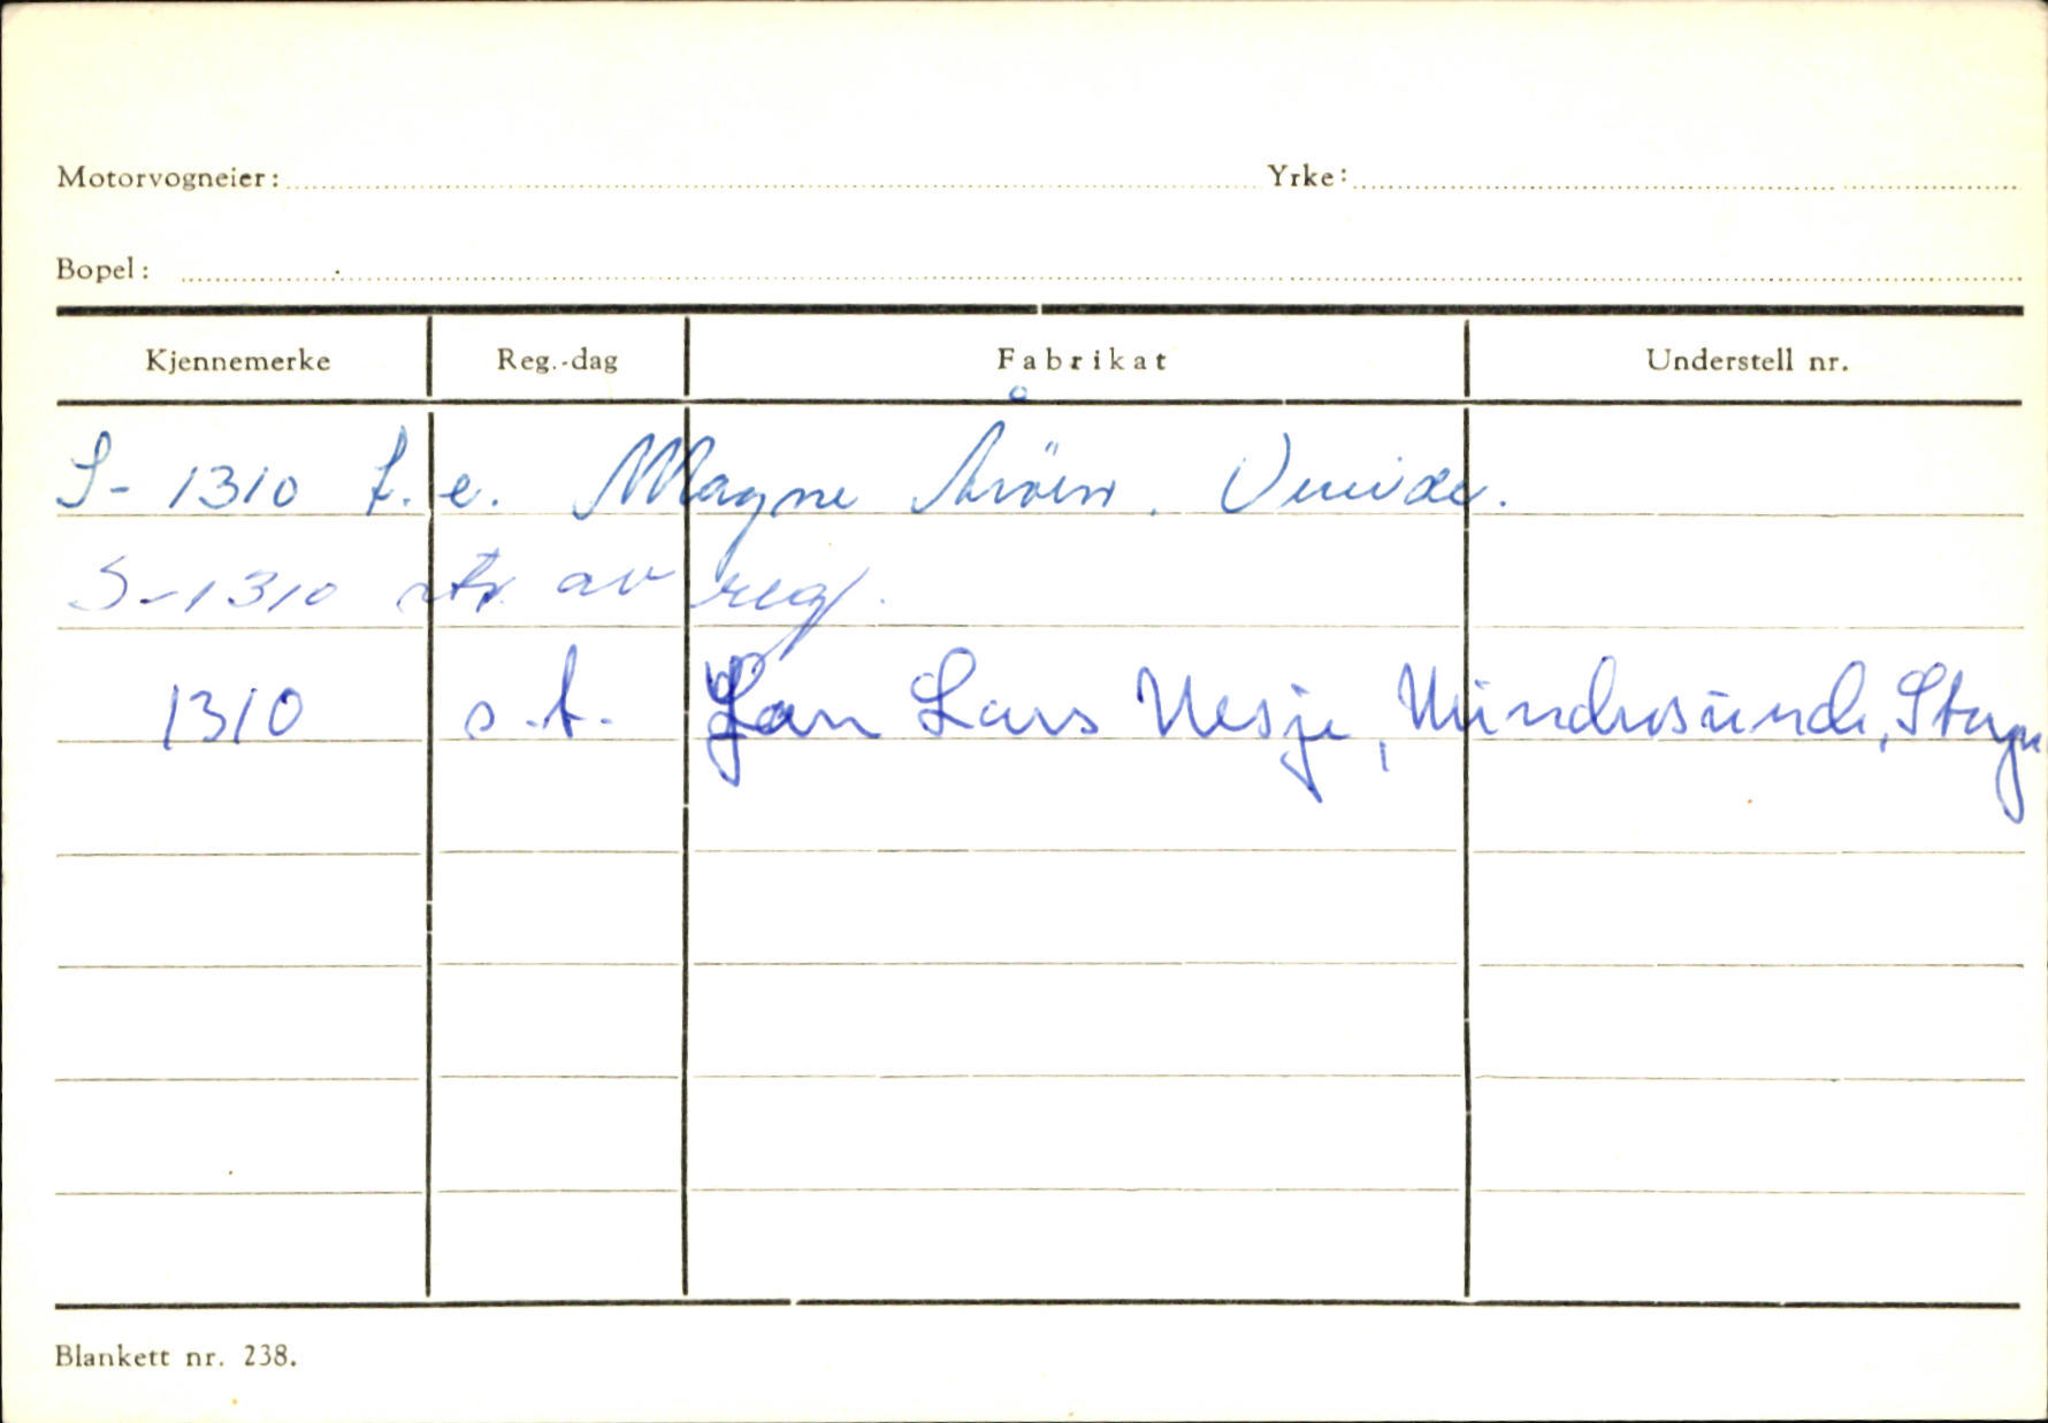 Motorvogneier: Yrke:
Bopel:
Kjennemerke Reg.-dag Fabrikat Understell nr.
S-1310 t.e. Magne
S-1310 str. av reg.
1310 s.t. Jan Lars Nesje, Stryn
Blankett nr. 238.